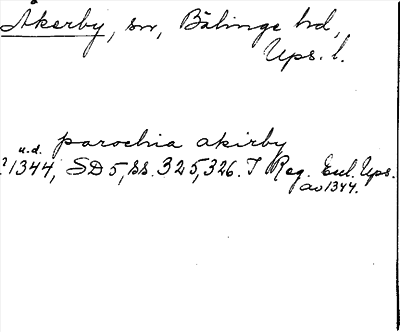 Åkerby, sn, Bälinge hd,
Ups. l.
parochia akirby
u.d.
1344, SD 5, ss. 325, 326. I Reg. Eccl. Ups.
av 1344.